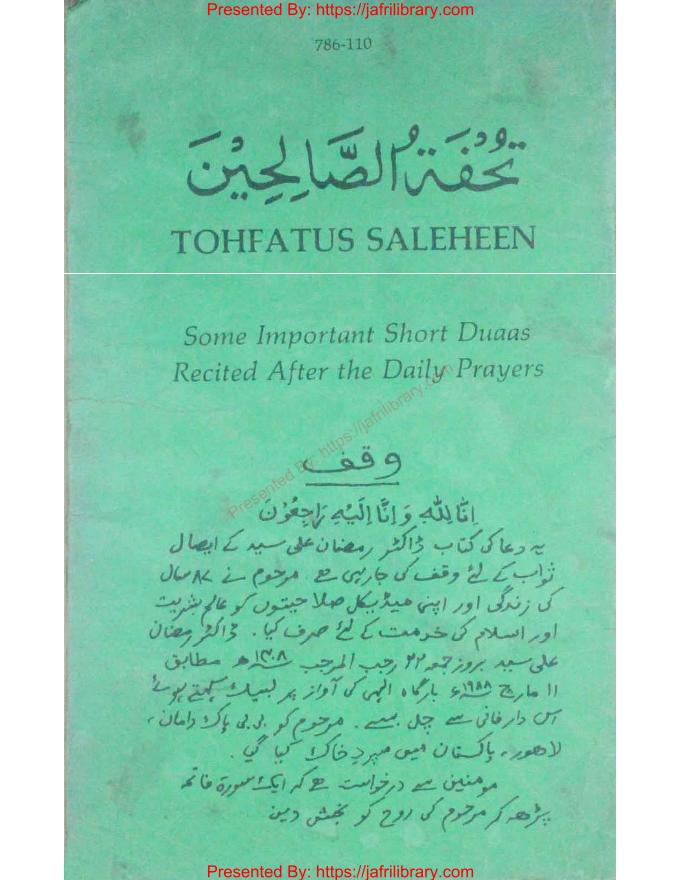 Presented By: https://jafrilibrary.com
786-110
تُحْفَةُ الصَّالِحِيْنَ
TOHFATUS SALEHEEN
Some Important Short Duaas
Recited After the Daily Prayers
Presented By: https://jafrilibrary.com
وقف
اِنّا لِلّٰہِ وَاِنَّا اِلَیْہِ رَاجِعُوْنَ
یہ دعا کی کتاب ڈاکٹر رمضان علی سید کے ایصال
ثواب کے لئے وقف کی جا رہی ہے۔ مرحوم نے ۸۷ سال
کی زندگی اور اپنی میڈیکل صلاحیتوں کو عالم بشریت
اور اسلام کی خدمت کے لئے صرف کیا۔ ڈاکٹر رمضان
علی سید بروز جمعہ ۲۲ رجب المرجب ۱۴۰۸ھ مطابق
۱۱ مارچ ۱۹۸۸ء بارگاہ الہی کی آواز پر لبیک کہتے ہوئے
اس دار فانی سے چل بسے۔ مرحوم کو بی بی پاک دامان،
لاھور، پاکستان میں سپرد خاک کیا گیا۔
مومنین سے درخواست ہے کہ ایک سورۃ فاتحہ
پڑھ کر مرحوم کی روح کو بخش دیں
Presented By: https://jafrilibrary.com